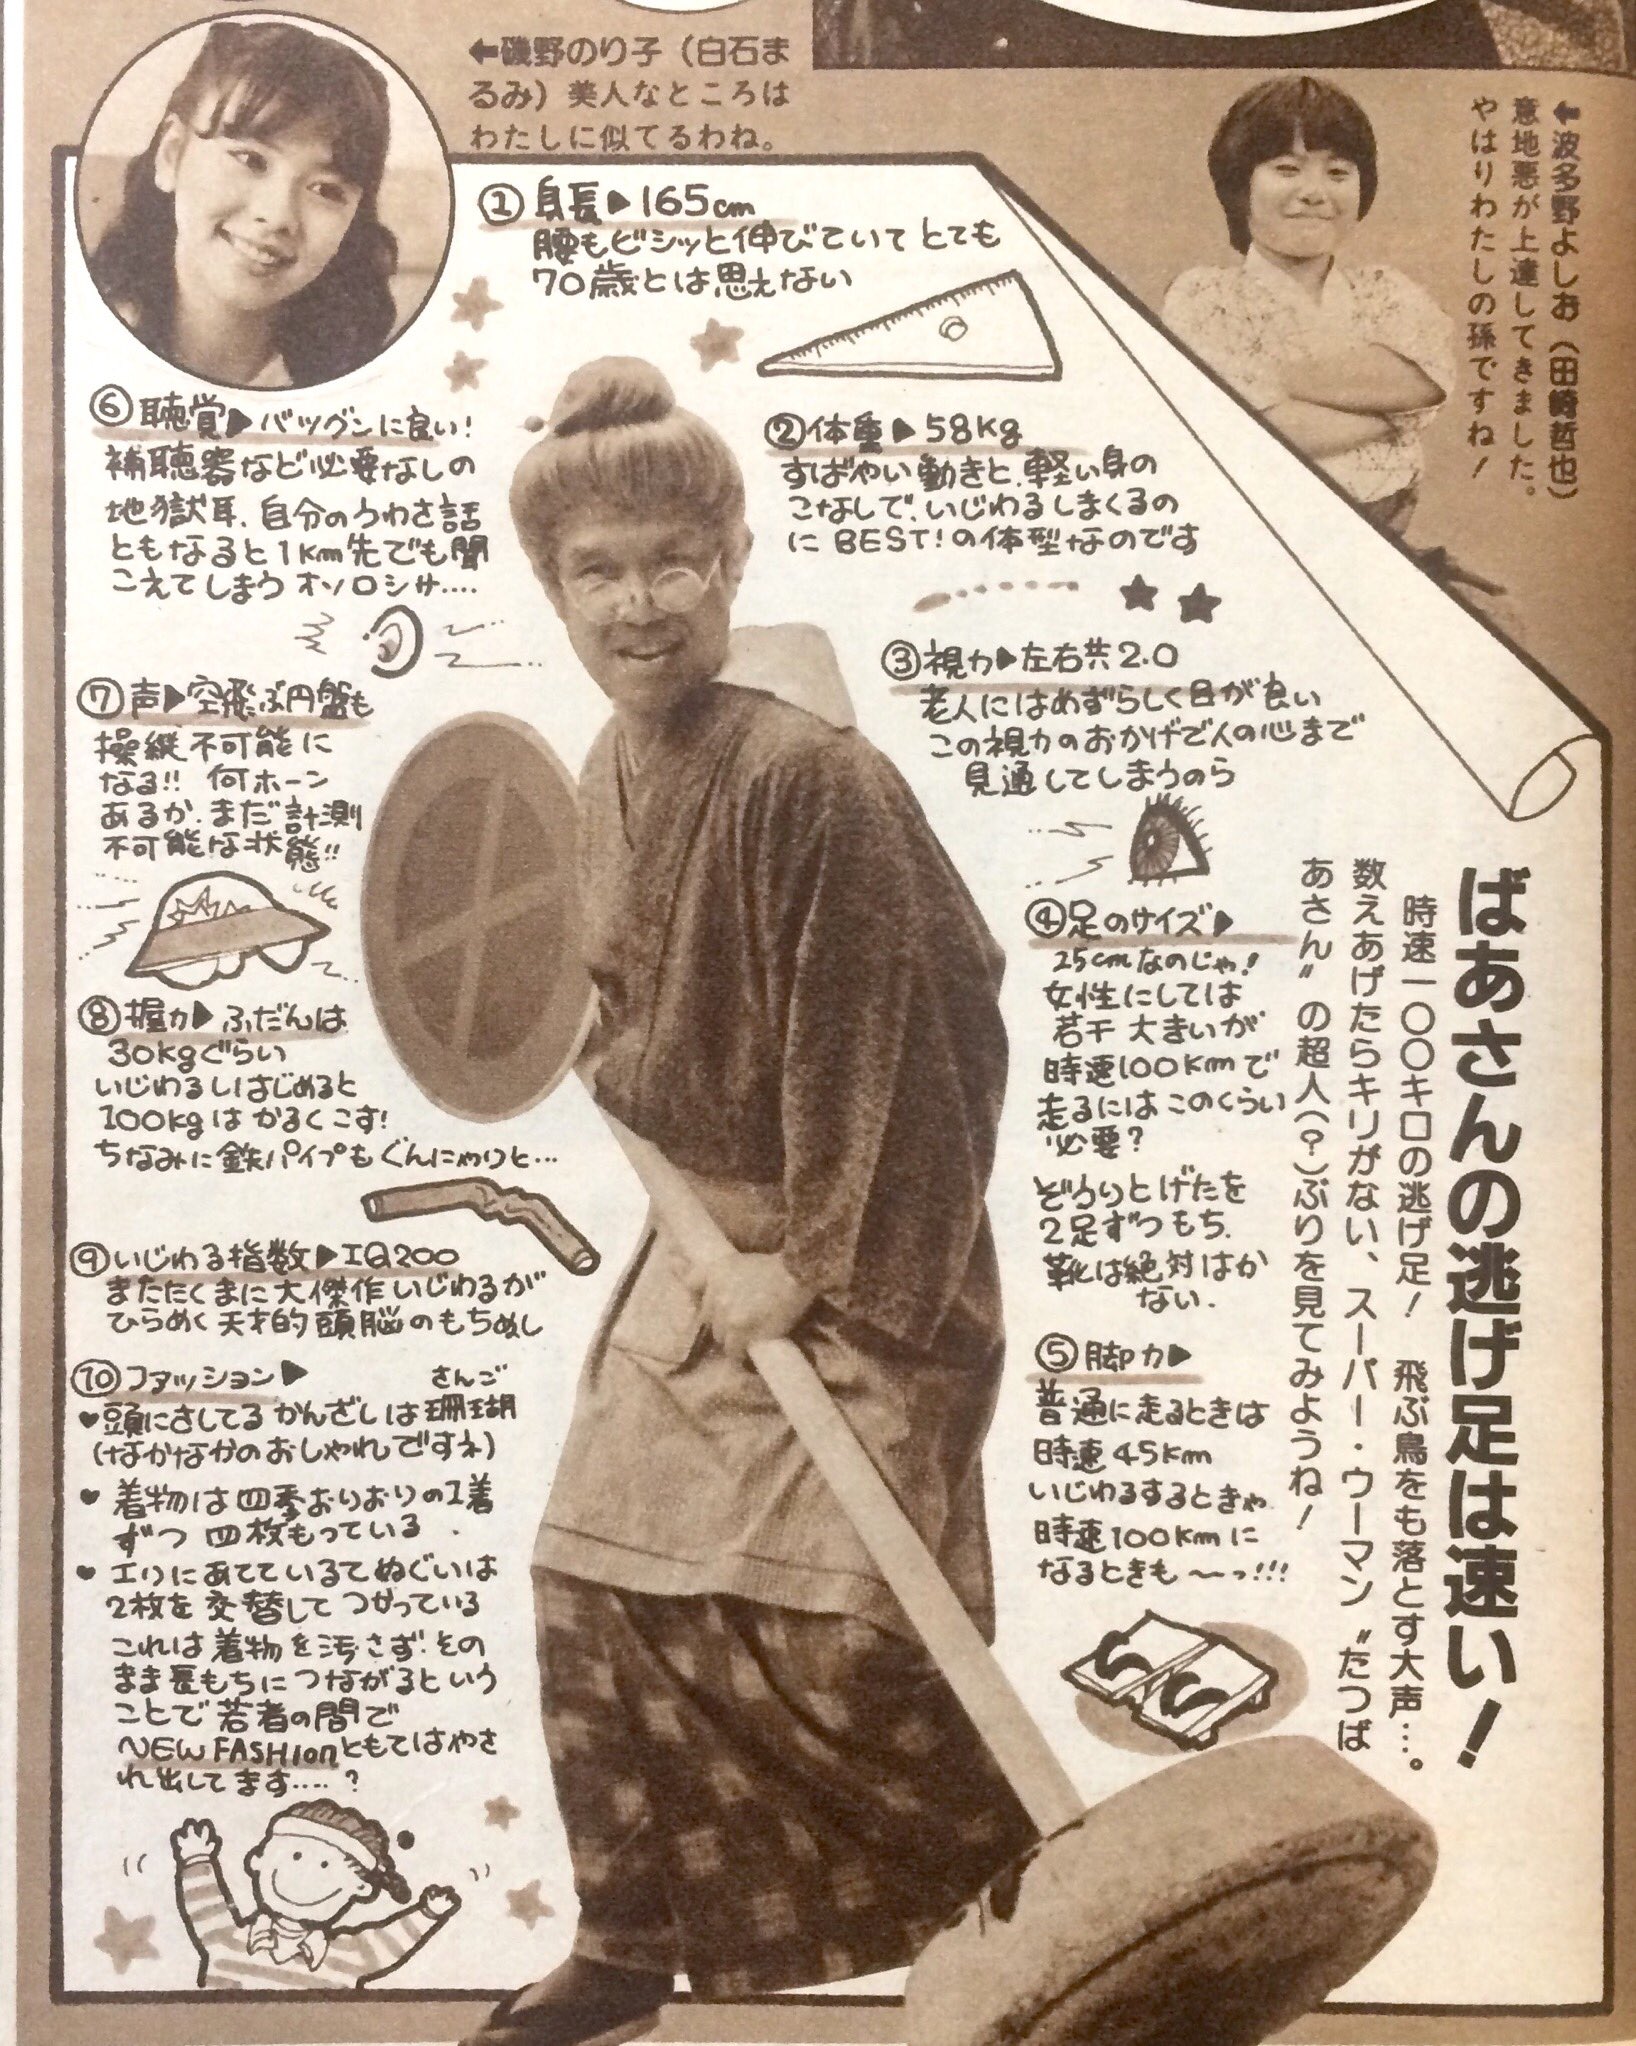 ←磯野のり子（白石ま
るみ）美人なところは
わたしに似てるわね。
←波多野よしお（田崎哲也）
意地悪が上達してきました。
やはりわたしの孫ですね！
ばあさんの逃げ足は速い！
時速一〇〇キロの逃げ足！　飛ぶ鳥をも落とす大声…。
数えあげたらキリがない、スーパー・ウーマン〝たつば
あさん〟の超人（？）ぶりを見てみようね！
①身長▶165cm
腰もビシッと伸びていてとても
70歳とは思えない
②体重▶58kg
すばやい動きと、軽い身の
こなしで、いじわるしまくるの
にBEST！の体型なのです
③視力▶左右共2.0
老人にはめずらしく目が良い
この視力のおかげで人の心まで
見通してしまうのら
④足のサイズ▶
25cmなのじゃ！
女性にしては
若干大きいが
時速100Kmで
走るにはこのくらい
必要？
ぞうりとげたを
2足ずつもち、
靴は絶対はか
ない．
⑤脚力▶
普通に走るときは
時速45Km
いじわるするときゃ
時速100Kmに
なるときも〜っ!!!
⑥聴覚▶バツグンに良い！
補聴器など必要なしの
地獄耳、自分のうわさ話
ともなると1Km先でも聞
こえてしまうオソロシサ‥‥
⑦声▶空飛ぶ円盤も
操縦不可能に
なる!! 何ホーン
あるか、まだ計測
不可能な状態!!
⑧握力▶ふだんは
30kgぐらい
いじわるしはじめると
100kgはかるくこす！
ちなみに鉄パイプもぐんにゃりと…
⑨いじわる指数▶IQ200
またたくまに大傑作いじわるが
ひらめく天才的頭脳のもちぬし
⑩ファッション▶
♥頭にさしてるかんざしは珊瑚
さんご
（なかなかのおしゃれですネ）
♥着物は四季おりおりの1着
ずつ四枚もっている．
♥エリにあてているてぬぐいは
2枚を交替してつかっている
これは着物を汚さず、その
まま長もちにつながるという
ことで若者の間で
NEW FASHIonともてはやさ
れ出してます‥‥？